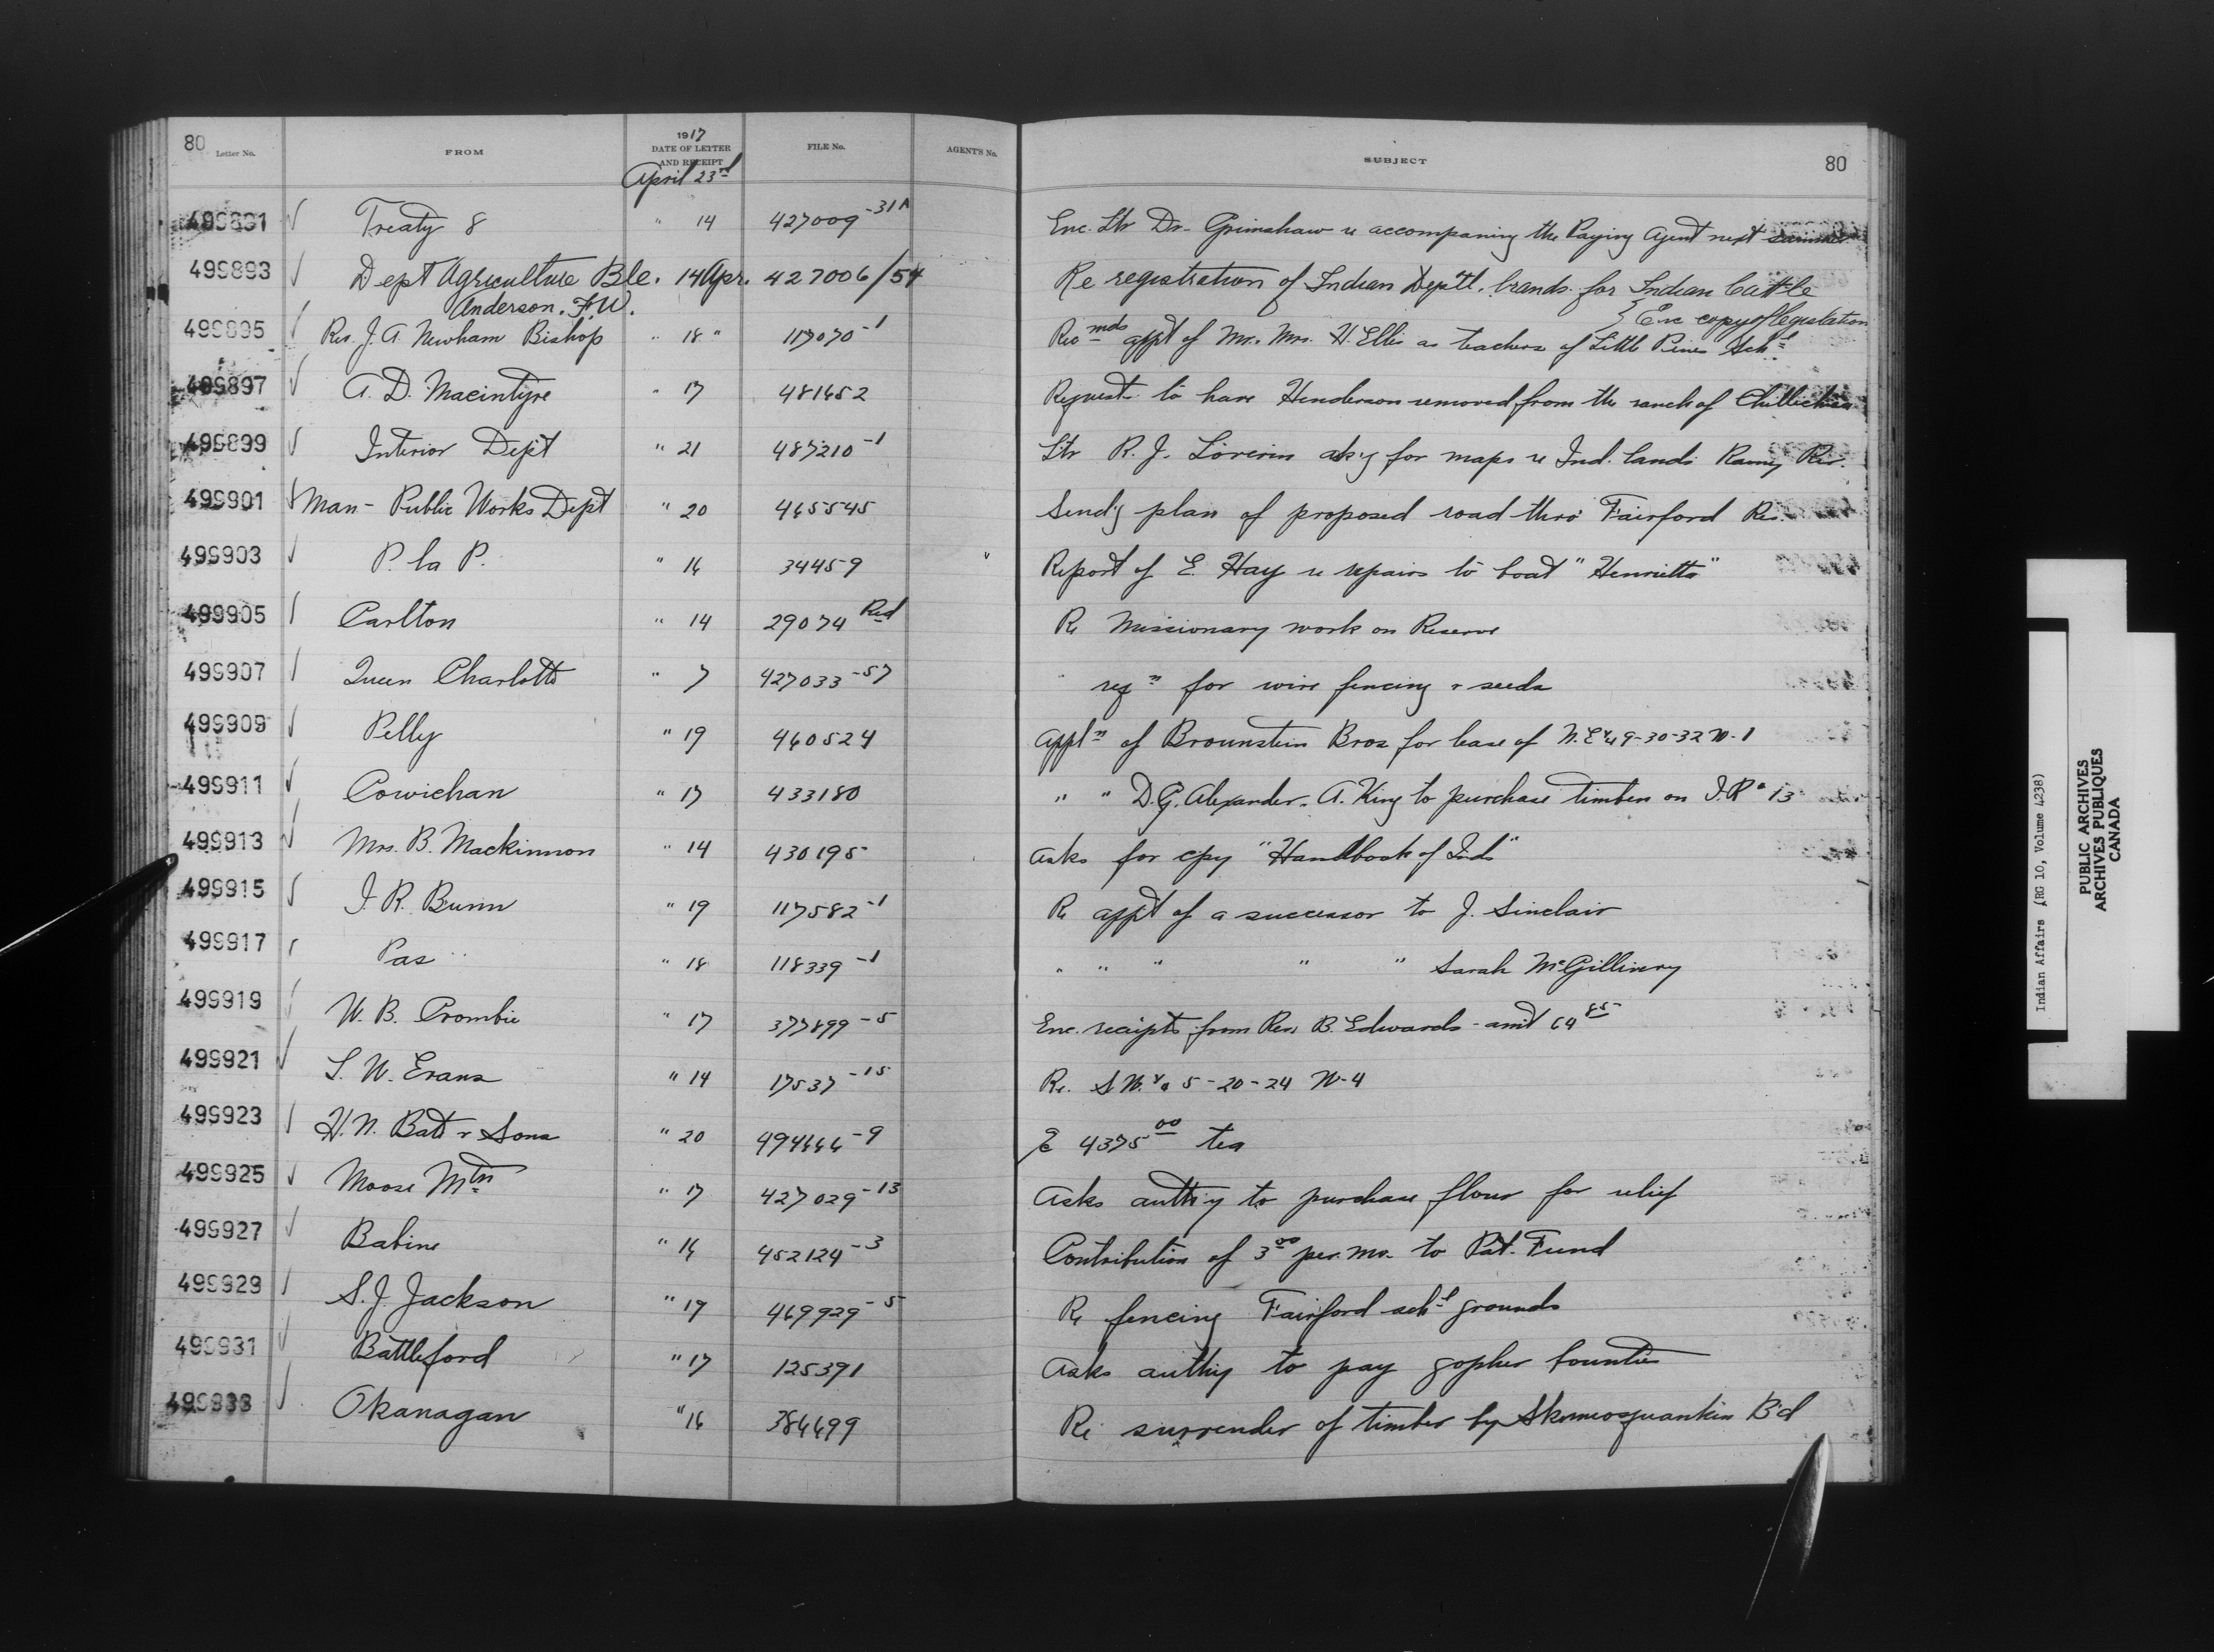 80 Letter No. FROM 1917 DATE OF LETTER AND RECEIPT FILE No. AGENT'S No. SUBJECT 80
April 23rd
499891 ✓ Treaty 8 " 14 427009-31A Enc. Ltr Dr. Grimshaw re accompaning the Paying Agent next summer
499893 ✓ Dept Agriculture Ble. 14 Apr. 427006/54 Re registration of Indian Dep'tl. brands for Indian Cattle
Anderson. F.W. } Enc copy of legislation
499895 ✓ Rev. J. A. Newham Bishop " 18 " 117070-1 Recmds appt of Mr. Mrs. H. Ellis as teachers of Little Pines Schl
499897 ✓ A. D. Macintyre " 17 481652 Requests to have Henderson removed from the ranch of
499899 ✓ Interior Dept " 21 487210-1 Ltr R. J. Loverin ask'g for maps re Ind. lands Rainy Riv.
499901 ✓ Man - Public Works Dept " 20 465545 Send'g plan of proposed road thro' Fairford Res.
499903 ✓ P. la P. " 16 34459 " Report of E. Hay re repairs to boat "Henrietta"
499905 ✓ Carlton " 14 29074 Red Re Missionary work on Reserve
499907 ✓ Queen Charlotte " 7 427033-57 " reqn for wire fencing & seeds
499909 ✓ Pelly " 19 460524 Appln of Brounstein Bros for lease of N.E 1/4 9-30-32 W-1
499911 ✓ Cowichan " 17 433180 " " D. G. Alexander. A. King to purchase timber on I.R. 13
499913 ✓ Mrs. B. Mackinnon " 14 430195 Asks for copy "Handbook of Inds"
499915 ✓ J. R. Bunn " 19 117582-1 Re appt of a successor to J. Sinclair
499917 ✓ Pas " 18 118339-1 " " " " " Sarah McGillivry
499919 ✓ W. B. Crombie " 17 377899-5 Enc. receipts from Rev. B. Edwards - amt 64 85
499921 ✓ S. W. Evans " 14 17537-15 Re. S W. 1/4 5-20-24 W-4
499923 ✓ H. N. Batt & Sons " 20 494666-9 4375 00 tea
499925 ✓ Moose Mtn " 17 427029-13 Asks auth'y to purchase flour for relief
499927 ✓ Babine " 16 452124-3 Contribution of 3 00 per. mo. to Pat. Fund
499929 ✓ S. J. Jackson " 19 469929-5 Re fencing Fairford schl grounds
499931 ✓ Battleford " 17 125391 Asks auth'y to pay gopher bounties
499933 ✓ Okanagan " 16 384699 Re surrender of timber by B'd
Indian Affairs (RG 10, Volume 4238)
PUBLIC ARCHIVES
ARCHIVES PUBLIQUES
CANADA